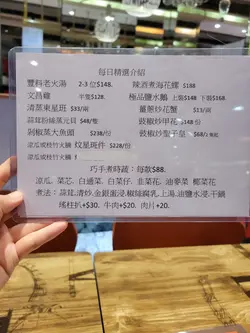 每日精選介紹
豐料老火湯 2-3 位$148. 辣酒煮海花螺 $188
文昌雞 半隻$128. 極品鹽水鵝 上莊$148 下莊$168
清蒸東星班 $33/両 薑蔥炒花蟹 $13/両
蒜茸粉絲蒸元貝 $48/隻 豉椒炒甲花 $148/份
剁椒蒸大魚頭 $238/份 豉椒炒聖子皇 $68/
涼瓜或枝竹火腩 炆星班件 $228/份
涼瓜或枝竹火腩
巧手煮時蔬：每款$88.
涼瓜. 菜芯. 白通菜. 白菜仔. 韭菜花. 油麥菜 椰菜花
煮法：蒜茸.清炒.金銀蛋浸.椒絲腐乳.上湯.油鹽水浸.干鍋
瑤柱扒+$30. 牛肉+$20. 肉片+20.